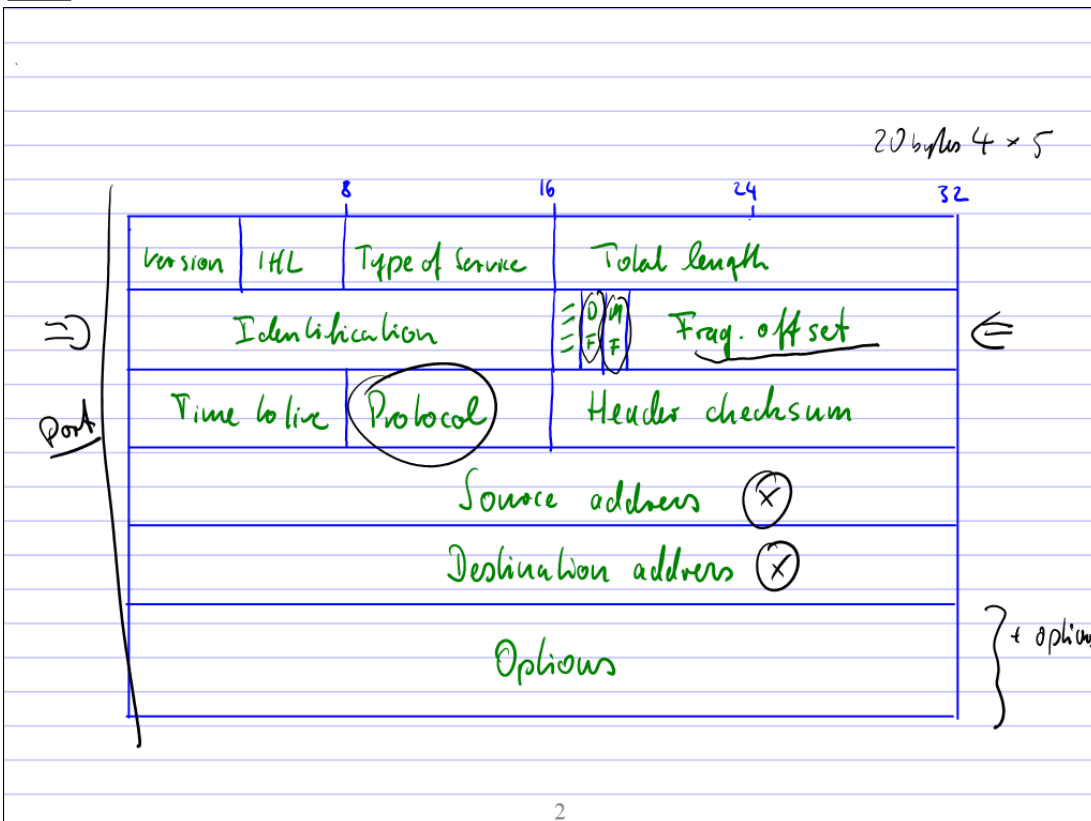 20 bytes 4 × 5
8 16 24 32
Version IHL Type of Service Total length
⇒ Identification D F M F Frag. offset ⇐
Port Time to live Protocol Header checksum
Source address X
Destination address X
Options + option
2